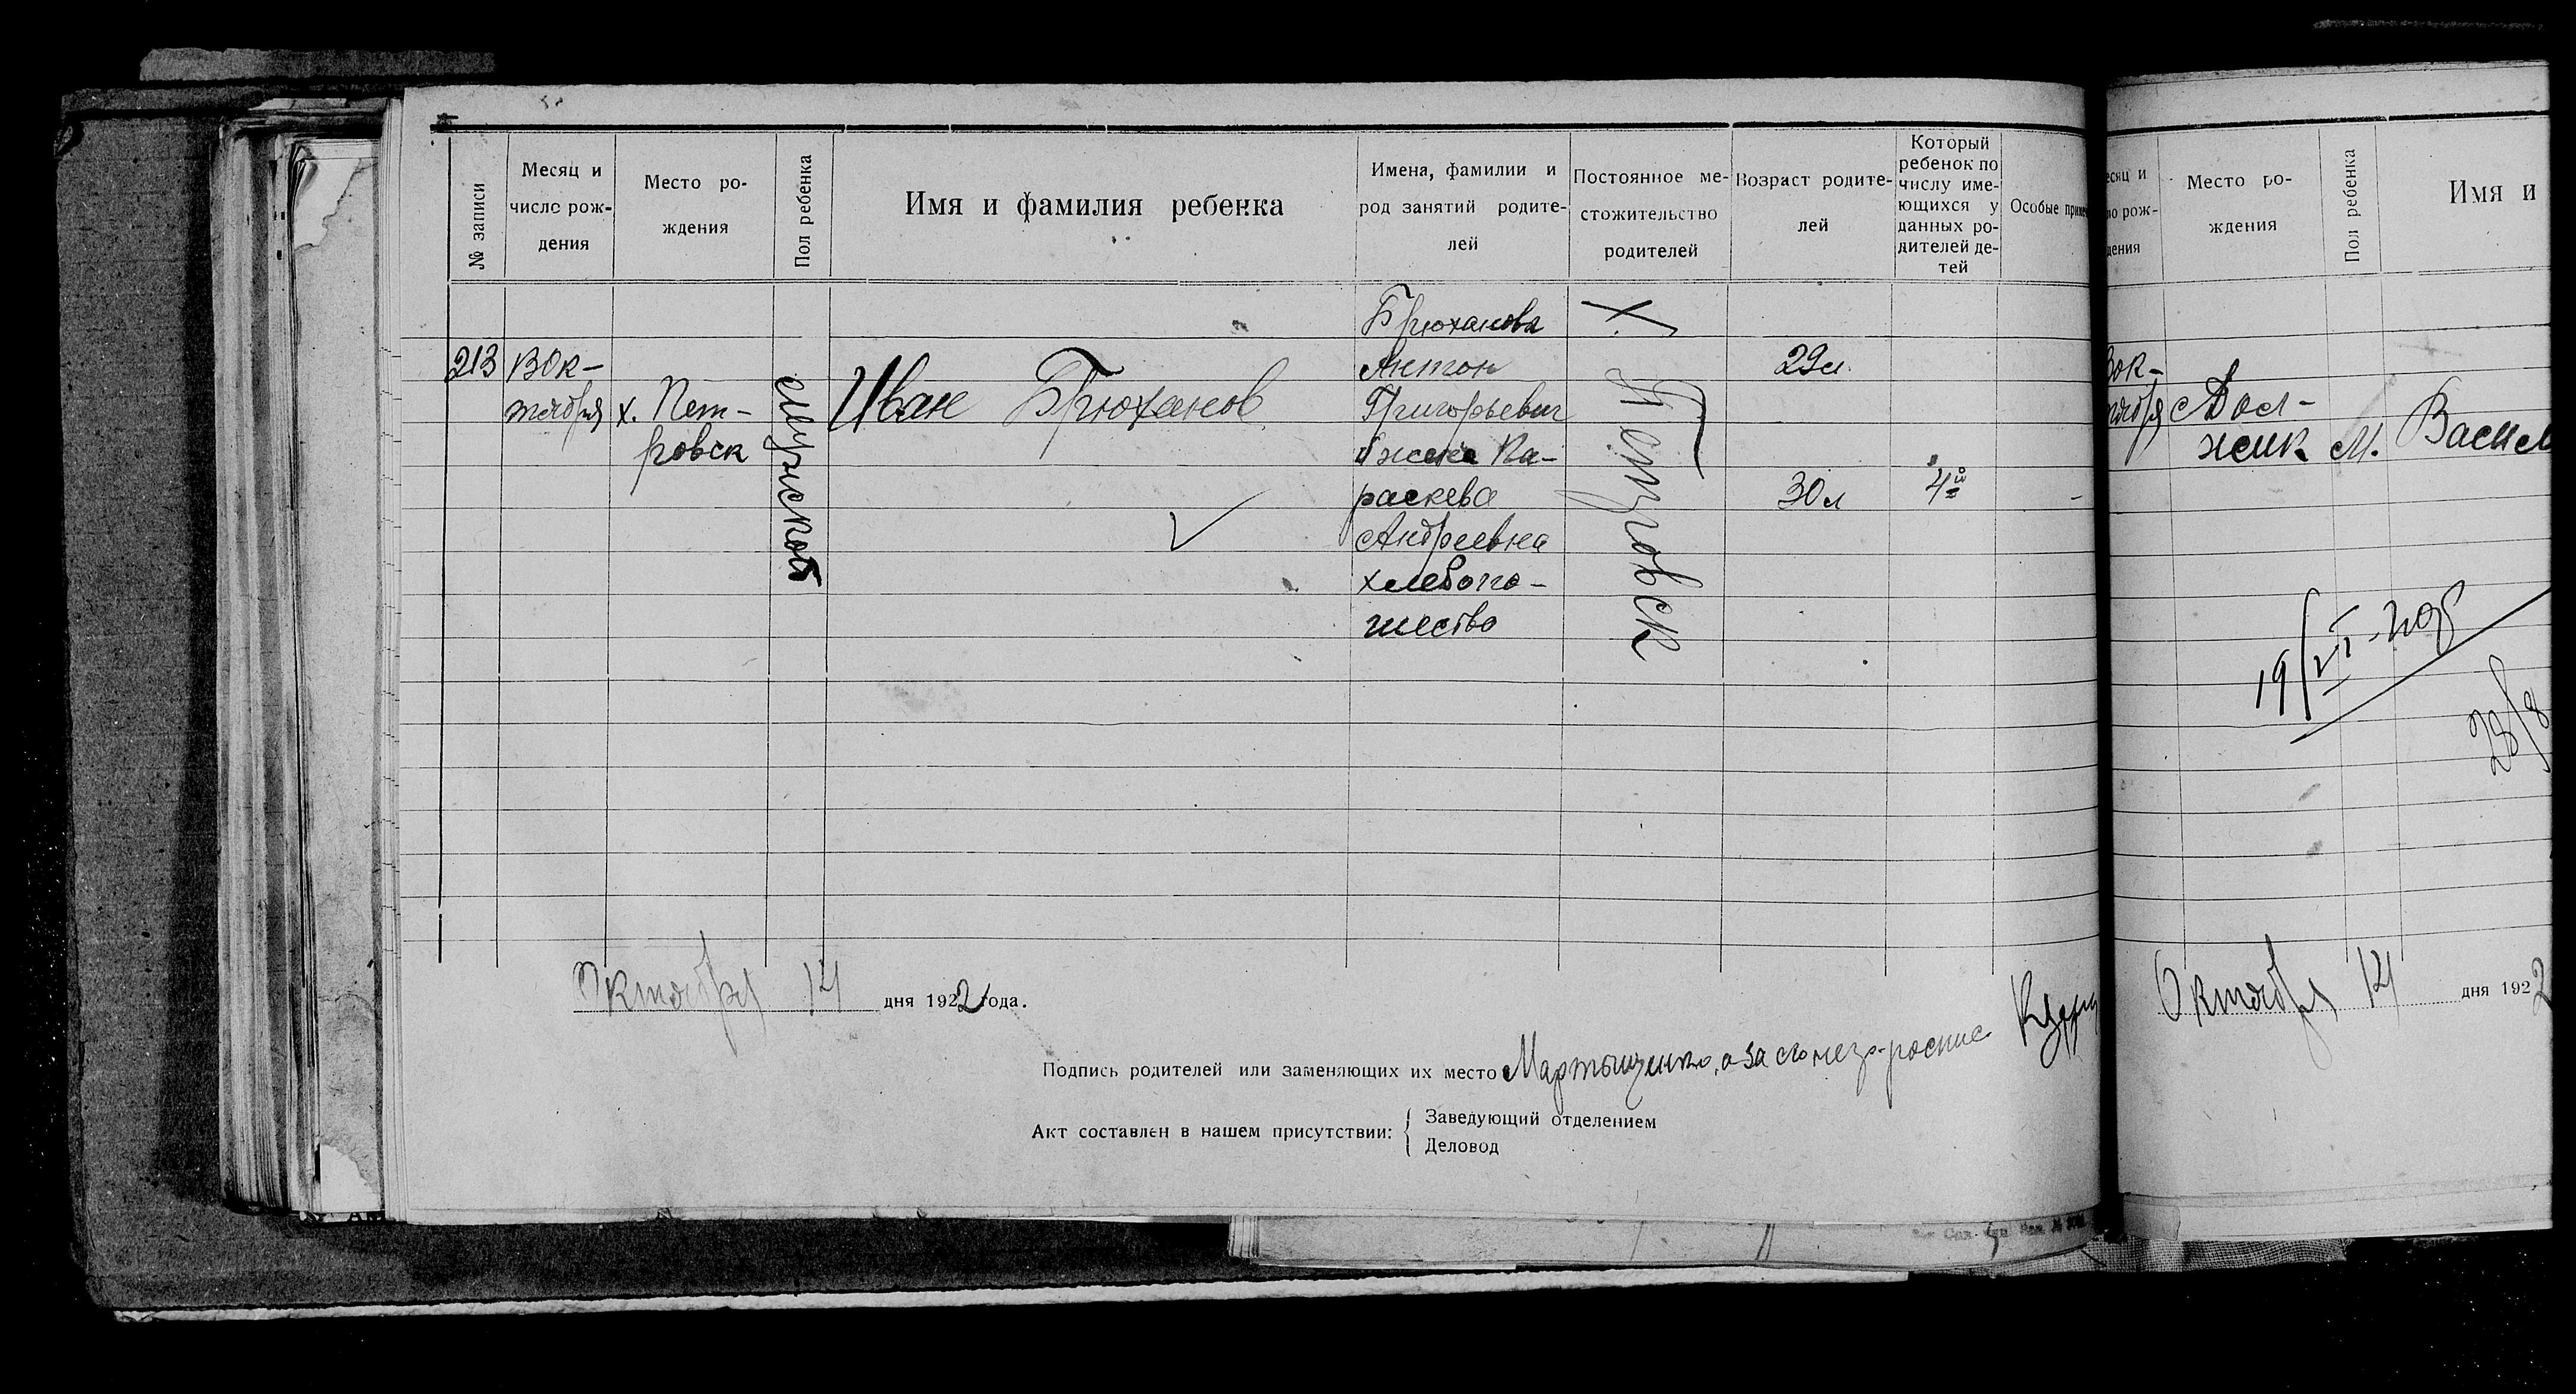 № записи
Месяц и
число рож-
дения
Место ро-
ждения
Пол ребенка
Имя и фамилия ребенка
Имена, фамилии и
род занятий родите-
лей
Постоянное ме-
стожительство
родителей
Возраст родите-
лей
Который
ребенок по
числу име-
ющихся у
данных ро-
дителей де-
тей
Особые приме
213
8 Ок-
тября
х. Пет-
ровск
мужской
Иван Брюханов
Брюханова
Антон
Григорьевич
жена Па-
раскева
Андреевна
хлебопа-
шество
Х. Петровск
29 л.
30 л
4й
-
Октября 14 дня 1922 года.
Подпись родителей или заменяющих их место Мартыщенко, а за
Акт составлен в нашем присутствии:
Заведующий отделением
Деловод
есяц и
ло рож-
дения
Место ро-
ждения
Пол ребенка
Имя и
8 ок-
тября
Дол-
жик
м.
Васил
19/VI-
28/8
Октября 14 дня 1922